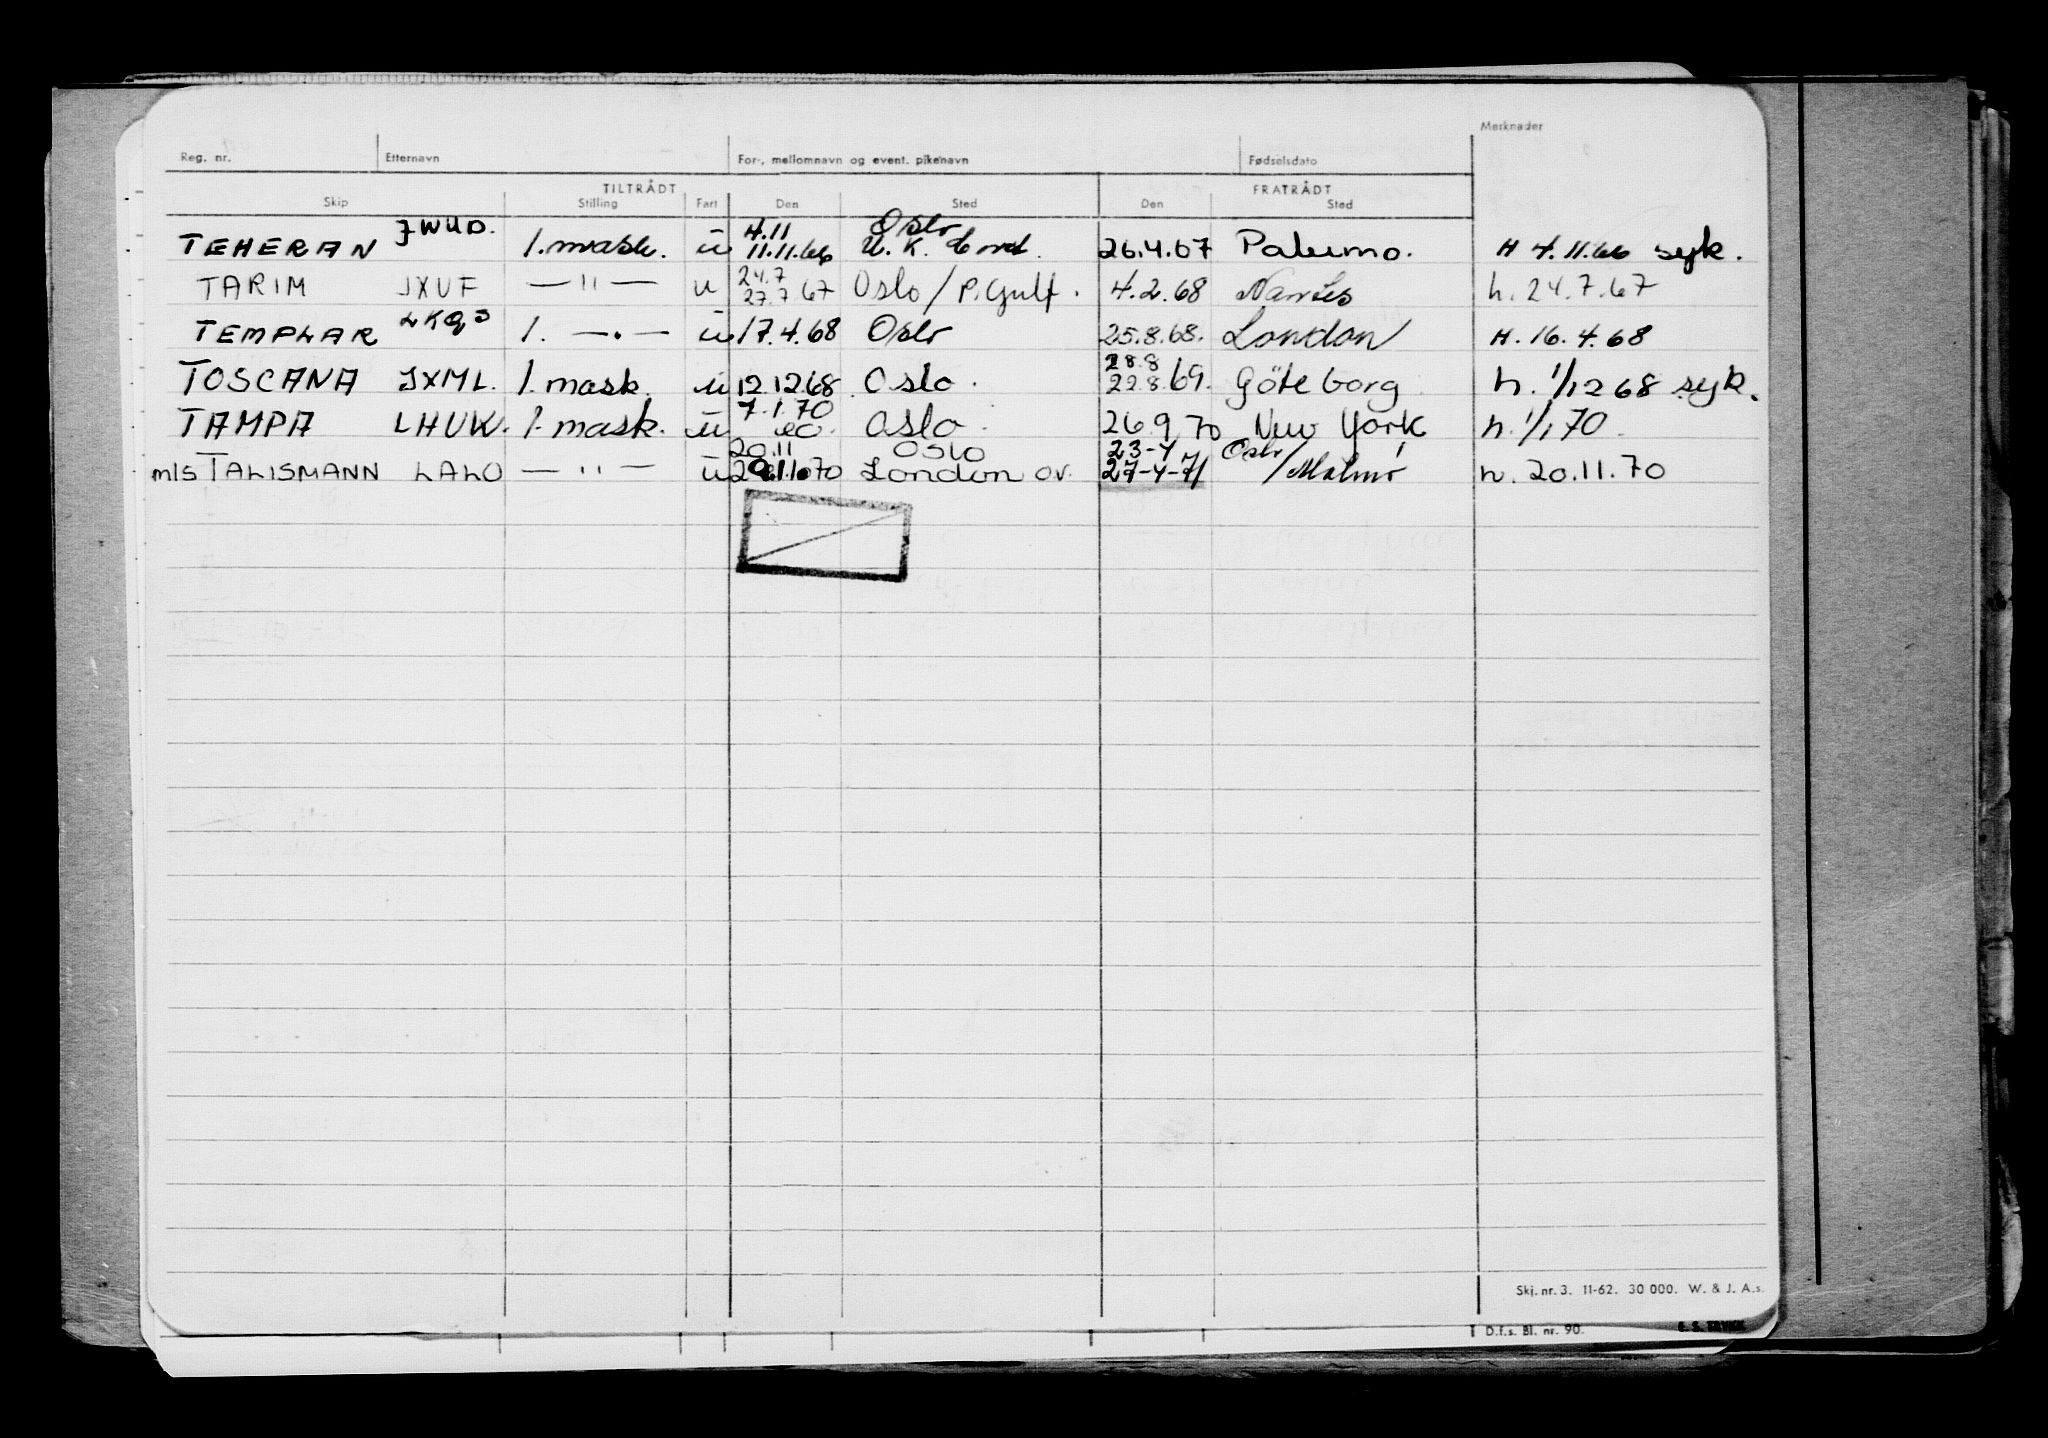 Merknader
Reg. nr. Etternavn For-, mellomnavn og event. pikenavn Fødselsdato
TILTRÅDT FRATRÅDT
Skip Stilling Fart Den Sted Den Sted
JWUD. 4.11 Oslo
TEHERAN 1. mask. u 11.11.66 U.K. Cont. 26.4.67 Palermo. H 4.11.66 syk.
24.7
TARIM JXUF — " — u 27.7 67 Oslo / P. Gulf. 4.2.68 Nantes h. 24.7.67
TEMPLAR LKQJ 1. — . — u 17.4.68 Oslo 25.8.68. London H. 16.4.68
28.8
TOSCANA JXML. 1. mask. u 12.12.68 Oslo. 22.8.69. Göteborg h. 1/12 68 syk.
7.1.70
TAMPA LHUK. 1. mask. u Oslo. 26.9.70 New York h. 1/1 70.
20.11 Oslo 23-4 Oslo/
m/s TALISMANN LALO — " — u London ov. 27-4-71 /Malmø h. 20.11.70
Skj. nr. 3. 11-62. 30 000. W. & J. A.s.
D.f.s. Bl. nr. 90.